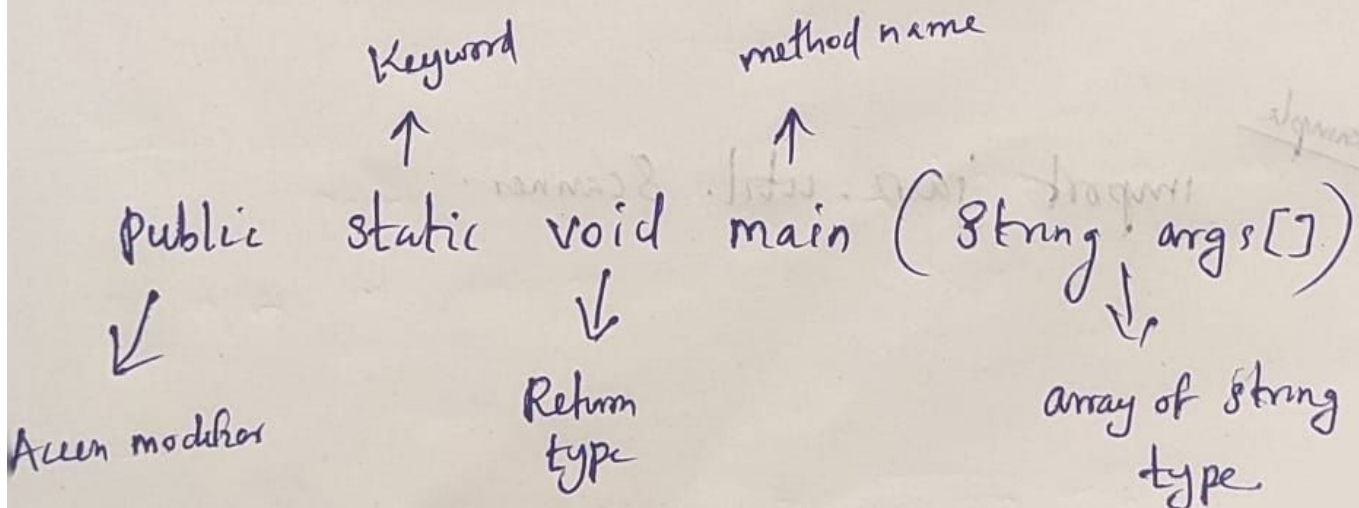 Keyword method name
public static void main (String args[])
Access modifier Return type array of string type